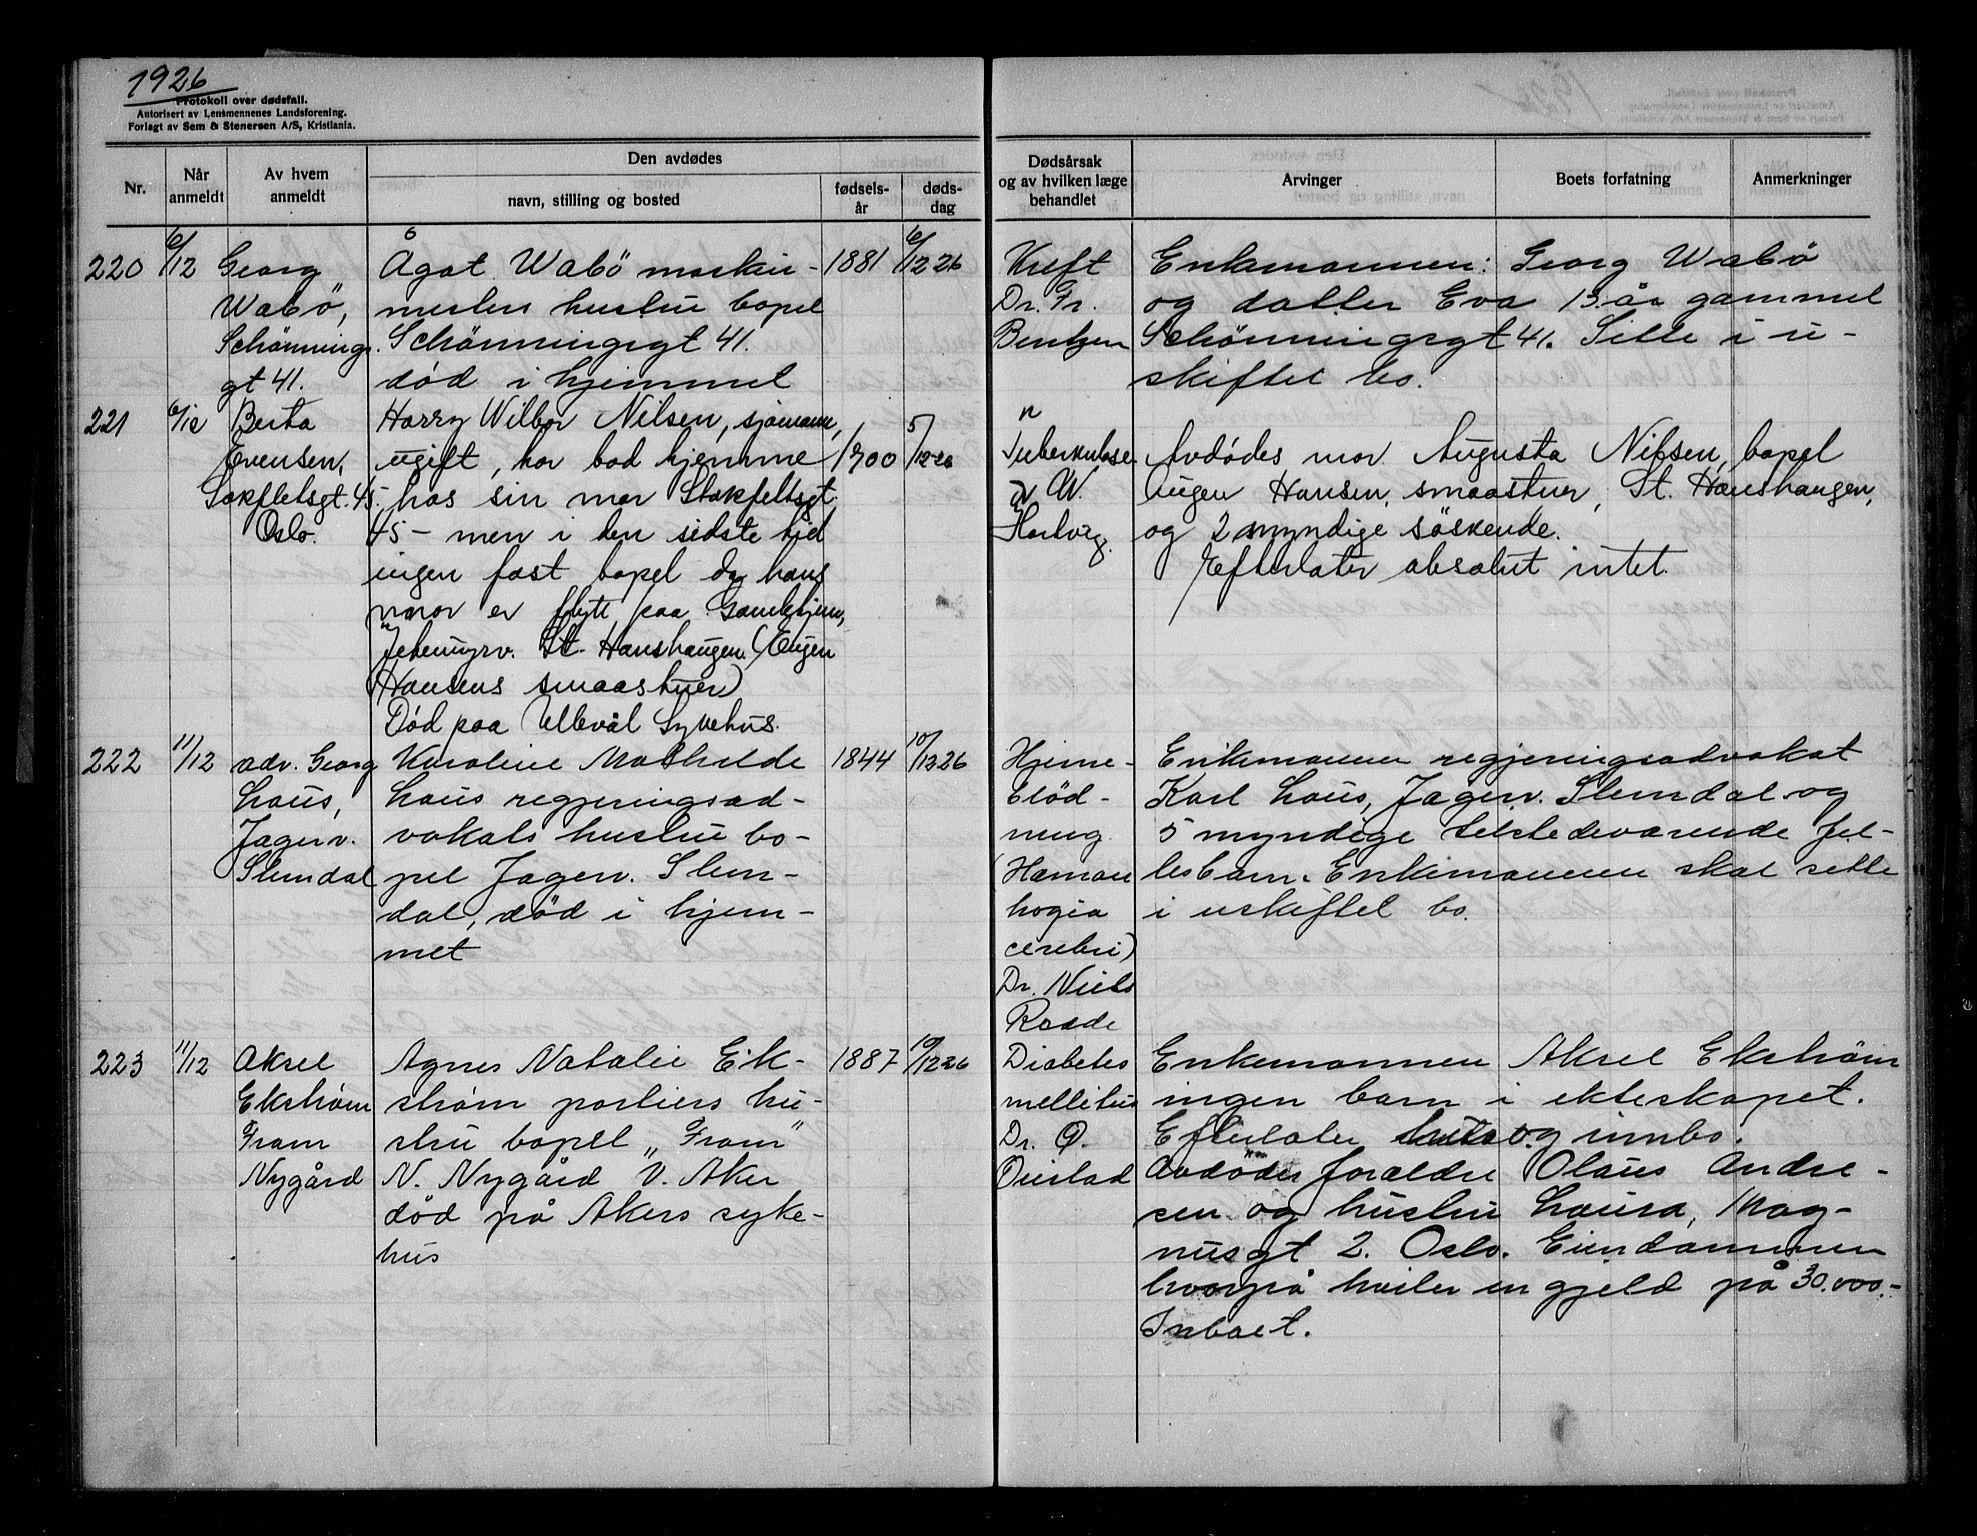 1926
Protokoll over dødsfall.
Autorisert av Lensmennenes Landsforening.
Forlagt av Sem & Stenersen A/S, Kristiania.
Nr.
Når anmeldt
Av hvem anmeldt
Den avdødes
navn, stilling og bosted
fødsels-år
døds-dag
Dødsårsak og av hvilken læge behandlet
Arvinger
Boets forfatning
Anmerkninger
220
6/12
Georg
Wabö,
Schønnings
gt 41.
Ågot Wabö maskin-
mesters hustru bopel
Schønningsgt 41.
död i hjemmet
1881
6/12 26
Kreft
Dr. Fr.
Bentzen
Enkemannen: Georg Wabö
og datter Eva 13 år gammel
Schønningsgt 41. Sitte i u-
skiftet bo.
221
6/12
Berta
Evensen,
Stokfletsgt. 45.
Oslo.
Harry Wilbor Nilsen, sjømann,
ugift, har bod hjemme
hos sin mor Stokfletsgt.
45 - men i den sidste tid
ingen fast bopel da hans
mor er flytt paa Gamlehjem,
St. Hanshaugen. (Eugen
Hansens smaastuer)
Död paa Ullevål Sykehus.
1900
5/12 26
Tuberkulose
Dr W.
Hartvig.
Avdødes mor Augusta Nilsen, bopel
Eugen Hansen, smaastuer, St. Hanshaugen,
og 2 myndige söskende.
Efterlater absolut intet.
222
11/12
adv. Georg
Lous,
Jagerv.
Slemdal
Karoline Mathilde
Lous regjeringsad-
vokats hustru bo-
pel Jagerv. Slem-
dal, död i hjem-
met
1844
10/12 26
Hjerne-
blöd-
ning
(Hæmorr
hagia
cerebri)
Dr. Niels
Raade
Enkemannen regjeringsadvokat
Karl Lous, Jagerv. Slemdal og
5 myndige tilstedeværende fel-
lesbarn. Enkemannen skal sitte
i uskiftet bo.
223
11/12
Aksel
Ekstrøm
Fram
Nygård
Agnes Natalie Ek-
strøm portiers hu-
stru bopel „Fram"
N. Nygård V. Aker
död på Akers syke-
hus
1887
10/12 26
Diabetes
mellitus
Dr. O.
Enkemannen Aksel Ekstrøm
ingen barn i ekteskapet.
Efterlater hus og innbo.
Avdødes foreldre Olaus Andre-
sen og hustru Laura, Mag-
nusgt 2. Oslo. Eiendommen
hvorpå hviler en gjeld på 30.000.-